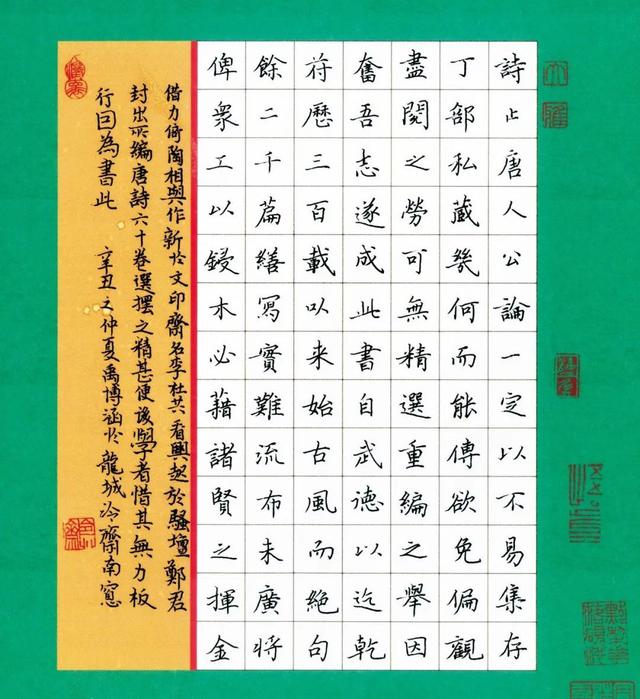 詩止唐人公論一定以不易集存
丁部私藏幾何而能傳欲免偏觀
盡閱之勞可無精選重編之舉因
奮吾志遂成此書自武德以迄乾
符歷三百載以来始古風而絕句
餘二千篇繕寫實難流布未廣將
俾衆工以鋟木必藉諸賢之揮金
借力倚陶相與作新於文印齋名李杜共看興起於騷壇鄭君
封出所編唐詩六十卷選擇之精甚便後學者惜其無力板
行回為書此 辛丑之仲夏禹博涵於龍城冷齋南窗